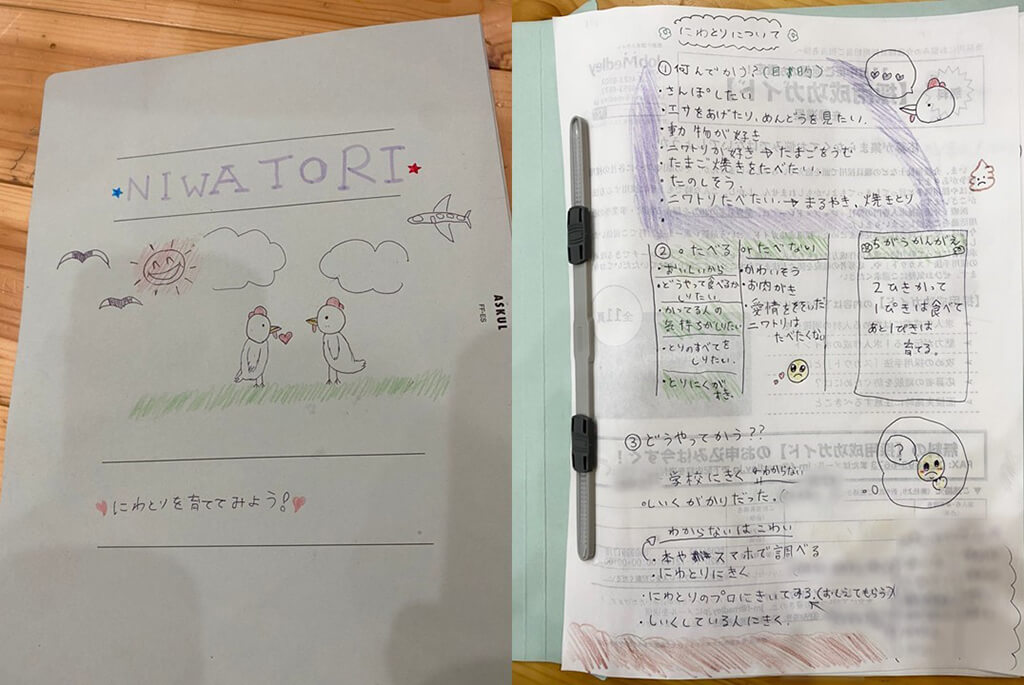 NIWATORI
ASKUL
FF-E5
にわとりを育ててみよう!
にわとりについて
①何んでかう?(目的)
・さんぽしたい
・エサをあげたり、めんどうを見たい.
・動物が好き
・ニワトリが好き→たまごをうむ
・たまご焼きをたべたい.
・たのしそう.
・ニワトリたべたい.→まるやき、焼きとり
②。たべる
・おいしいから
・どうやって食べるか
しりたい
・かってる人の
気持ちがしりたい
・とりのすべてを
しりたい.
・とりにくが
すき.
orたべない
・かわいそう
・お肉がき
・愛情をそそいだ
ニワトリは
たべたくない
ちがうかんがえ
2ひきかって
1ぴきは食べて
あと1ぴきは
育てる。
③どうやってかう??
?
学校にきく←わからない
しいくがかりだった.
わからないはこわい
・本やスマホで調べる
・にわとりにきく
・にわとりのプロにきいてみる.(おしえてもらう)
・しいくしている人にきく.